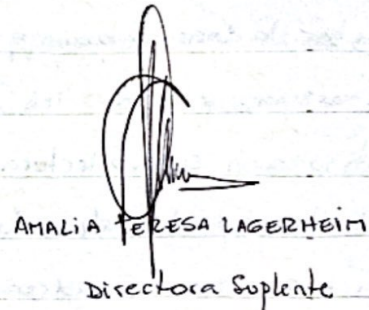 AMALIA TERESA LAGERHEIM
Directora Suplente